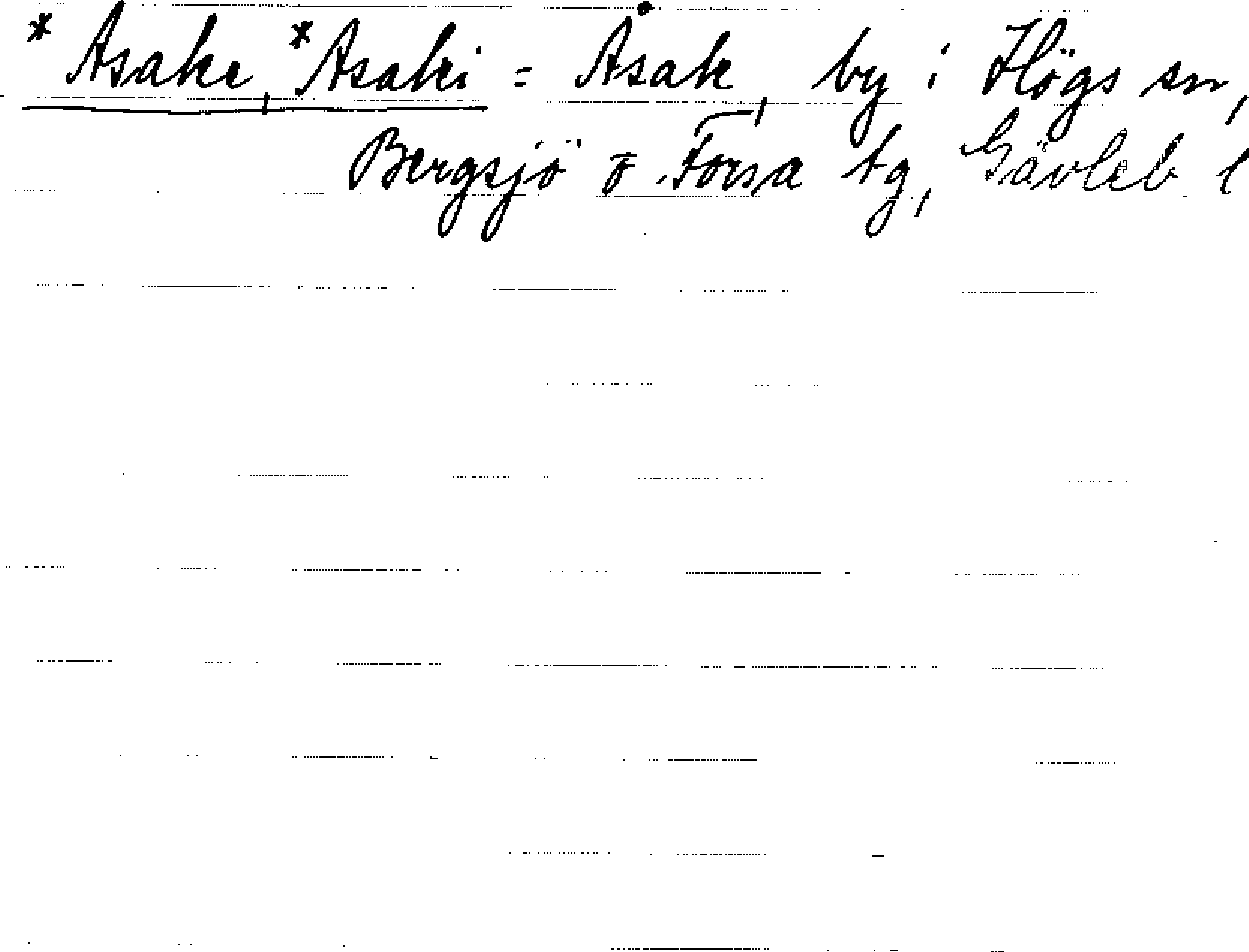 *Asake, *Asaki = Åsak, by i Högs sn,
Bergsjö o Forsa tg, Gävleb l